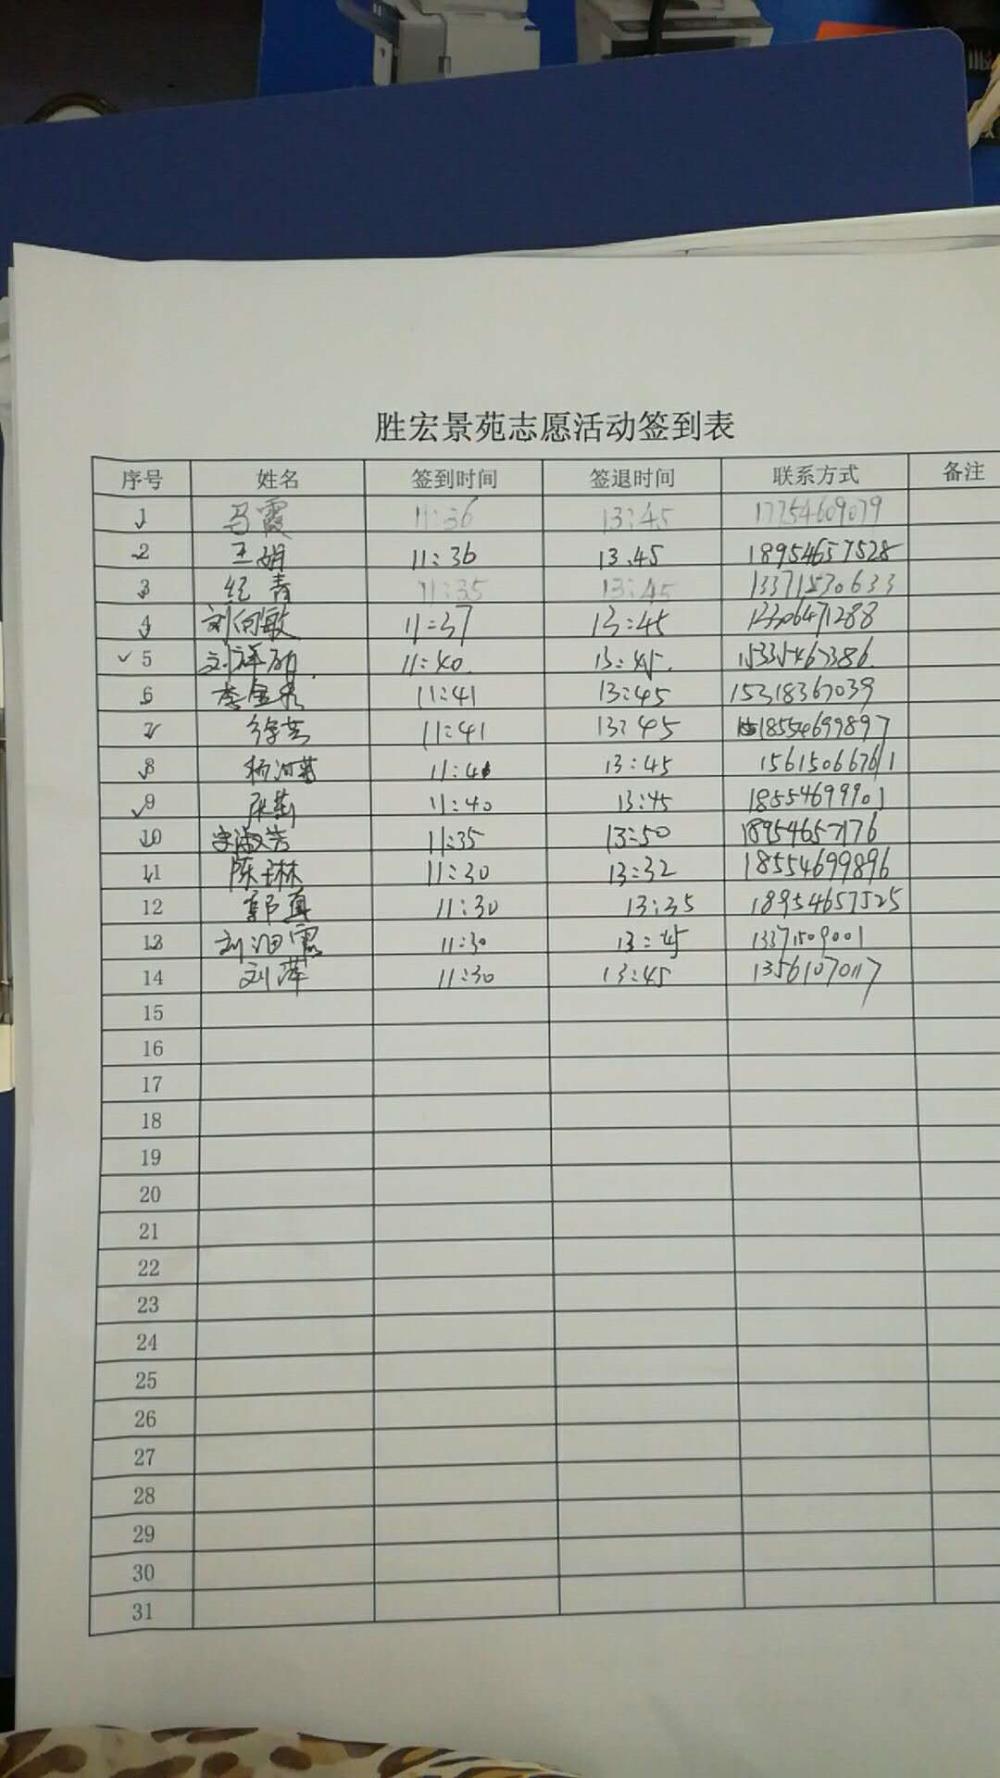 胜宏景苑志愿活动签到表
序号 姓名 签到时间 签退时间 联系方式 备注
1 马霞 11:36 13:45 17754609079
2 王娟 11:36 13.45 18954657528
3 纪青 11:35 13:45 13371530633
4 刘向敏 11:37 13:45 13306471288
5 刘祥 11:40. 13:45. 15335467386.
6 李金 11:41 13:45 15318367039
7 徐芸 11:41 13:45 18554699897
8 杨 11:40 13:45 15615066761
9 11:40 13:45 18554699901
10 11:35 13:50 18954657176
11 陈琳 11:30 13:32 18554699896
12 郭真 11:30 13:35 18954657525
13 刘 11:30 13:45 13371509001
14 刘萍 11:30 13:45 13561070117
15
16
17
18
19
20
21
22
23
24
25
26
27
28
29
30
31